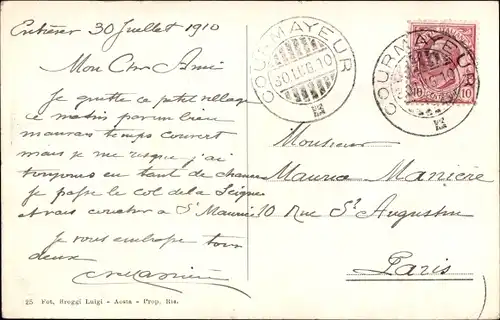 Entrèves 30 Juillet 1910
Mon Cher Ami
Je quitte ce petit village
ce matin par un beau
mauvais temps couvert
mais je me risque j'ai
toujours eu tant de chance
Je passe le col de la Seigne
et vais coucher à St Maurice
Je vous embrasse tous
deux
COURMAYEUR
30 LUG 10
COURMAYEUR
10
Monsieur
Maurice Manière
10 Rue St Augustin
Paris
25 Fot. Broggi Luigi - Aosta - Prop. Ris.